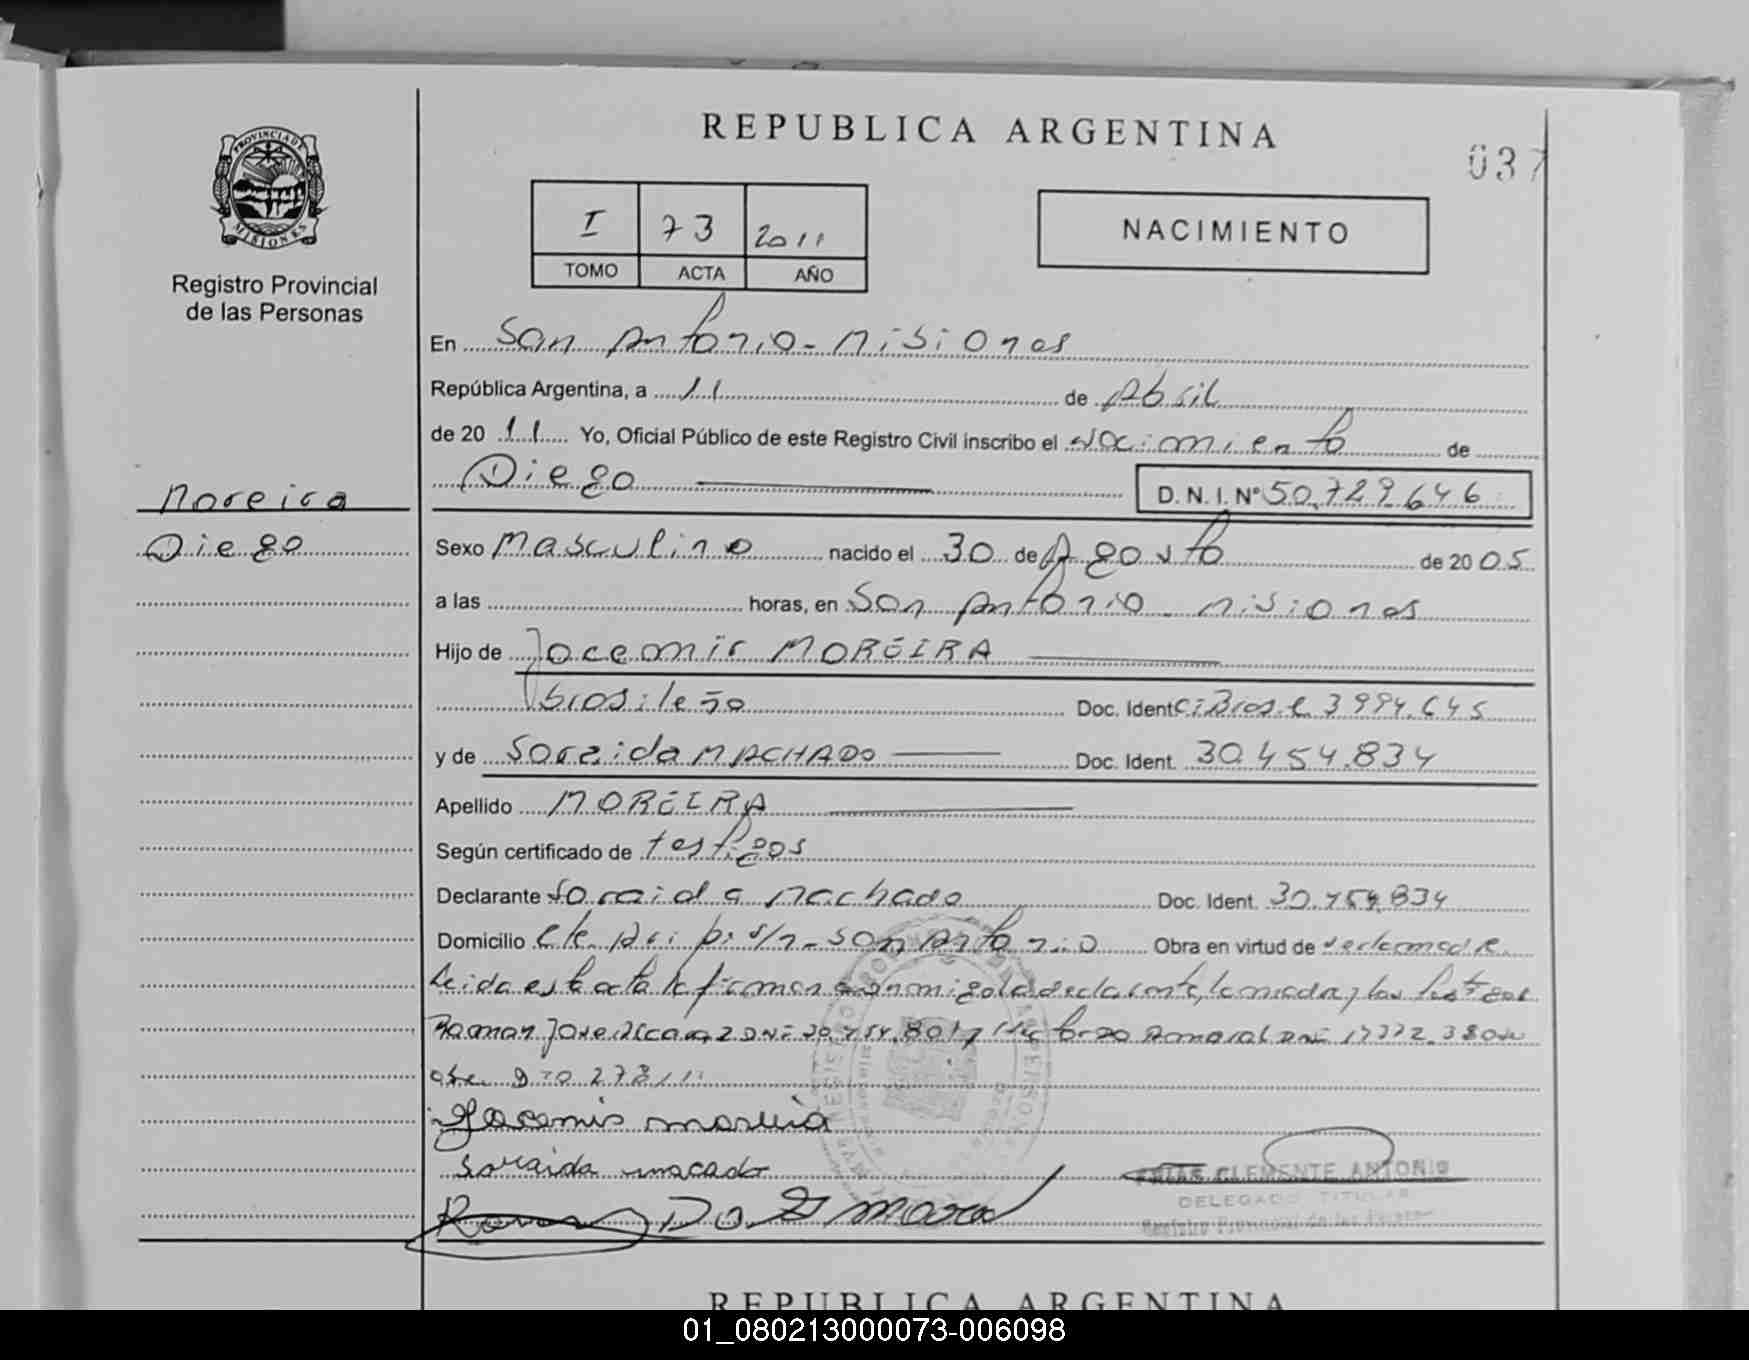 REPUBLICA ARGENTINA
037
PROVINCIA DE
MISIONES
Registro Provincial
de las Personas
I 73 2011
TOMO ACTA AÑO
NACIMIENTO
En San Antonio - Misiones
República Argentina, a 11 de Abril
de 20 11 Yo, Oficial Público de este Registro Civil inscribo el Nacimiento de
Diego D. N. I. Nº 50.729.646
Moreira
Diego
Sexo Masculino nacido el 30 de Agosto de 20 05
a las horas, en San Antonio - Misiones
Hijo de Joceomir MOREIRA
brasileño Doc. Ident. 3994.645
y de Soraida MACHADO Doc. Ident. 30.454.834
Apellido MOREIRA
Según certificado de testigos
Declarante Soraida Machado Doc. Ident. 30.454.834
Domicilio s/n - San Antonio Obra en virtud de
Leida esta acta la firman conmigo la declarante, la madre y los testigos
Ramon Jose DNI Amaral DNI
278/11
moreira
Soraida macado
FRIAS CLEMENTE ANTONIO
DELEGADO TITULAR
Registro Provincial de las Personas
REPUBLICA ARGENTINA
01_080213000073-006098